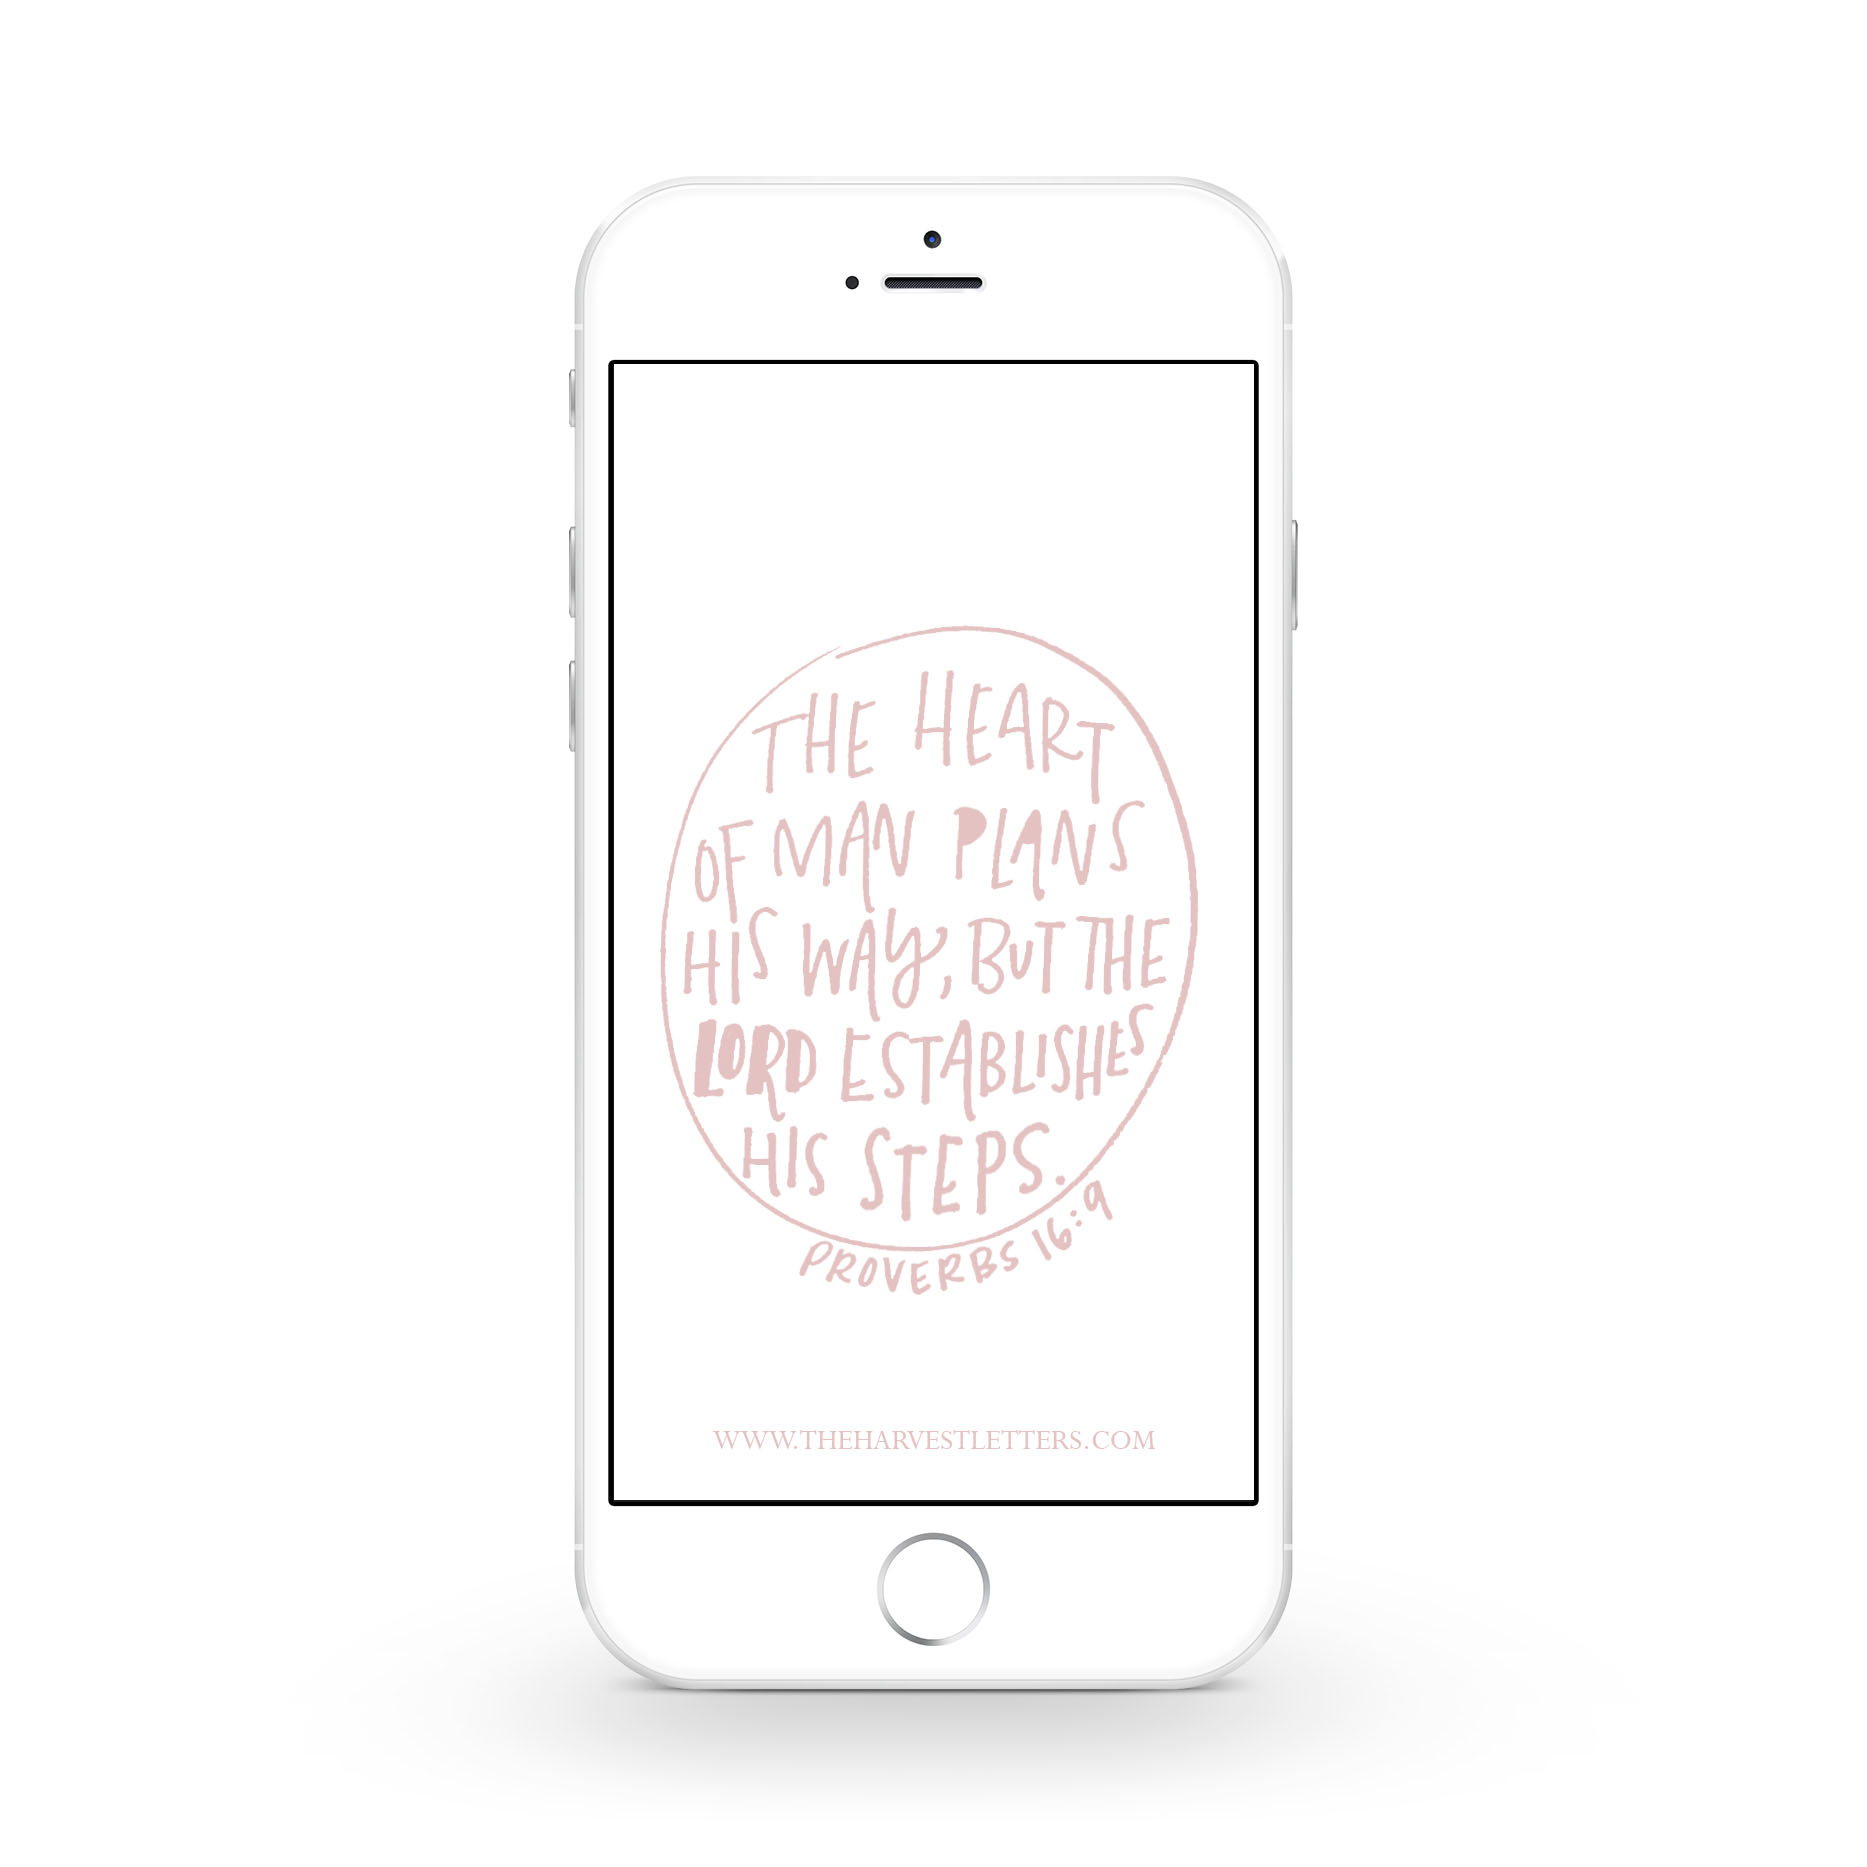 THE HEART
OF MAN PLANS
HIS WAY, BUT THE
LORD ESTABLISHES
HIS STEPS.
PROVERBS 16:9
WWW.THEHARVESTLETTERS.COM